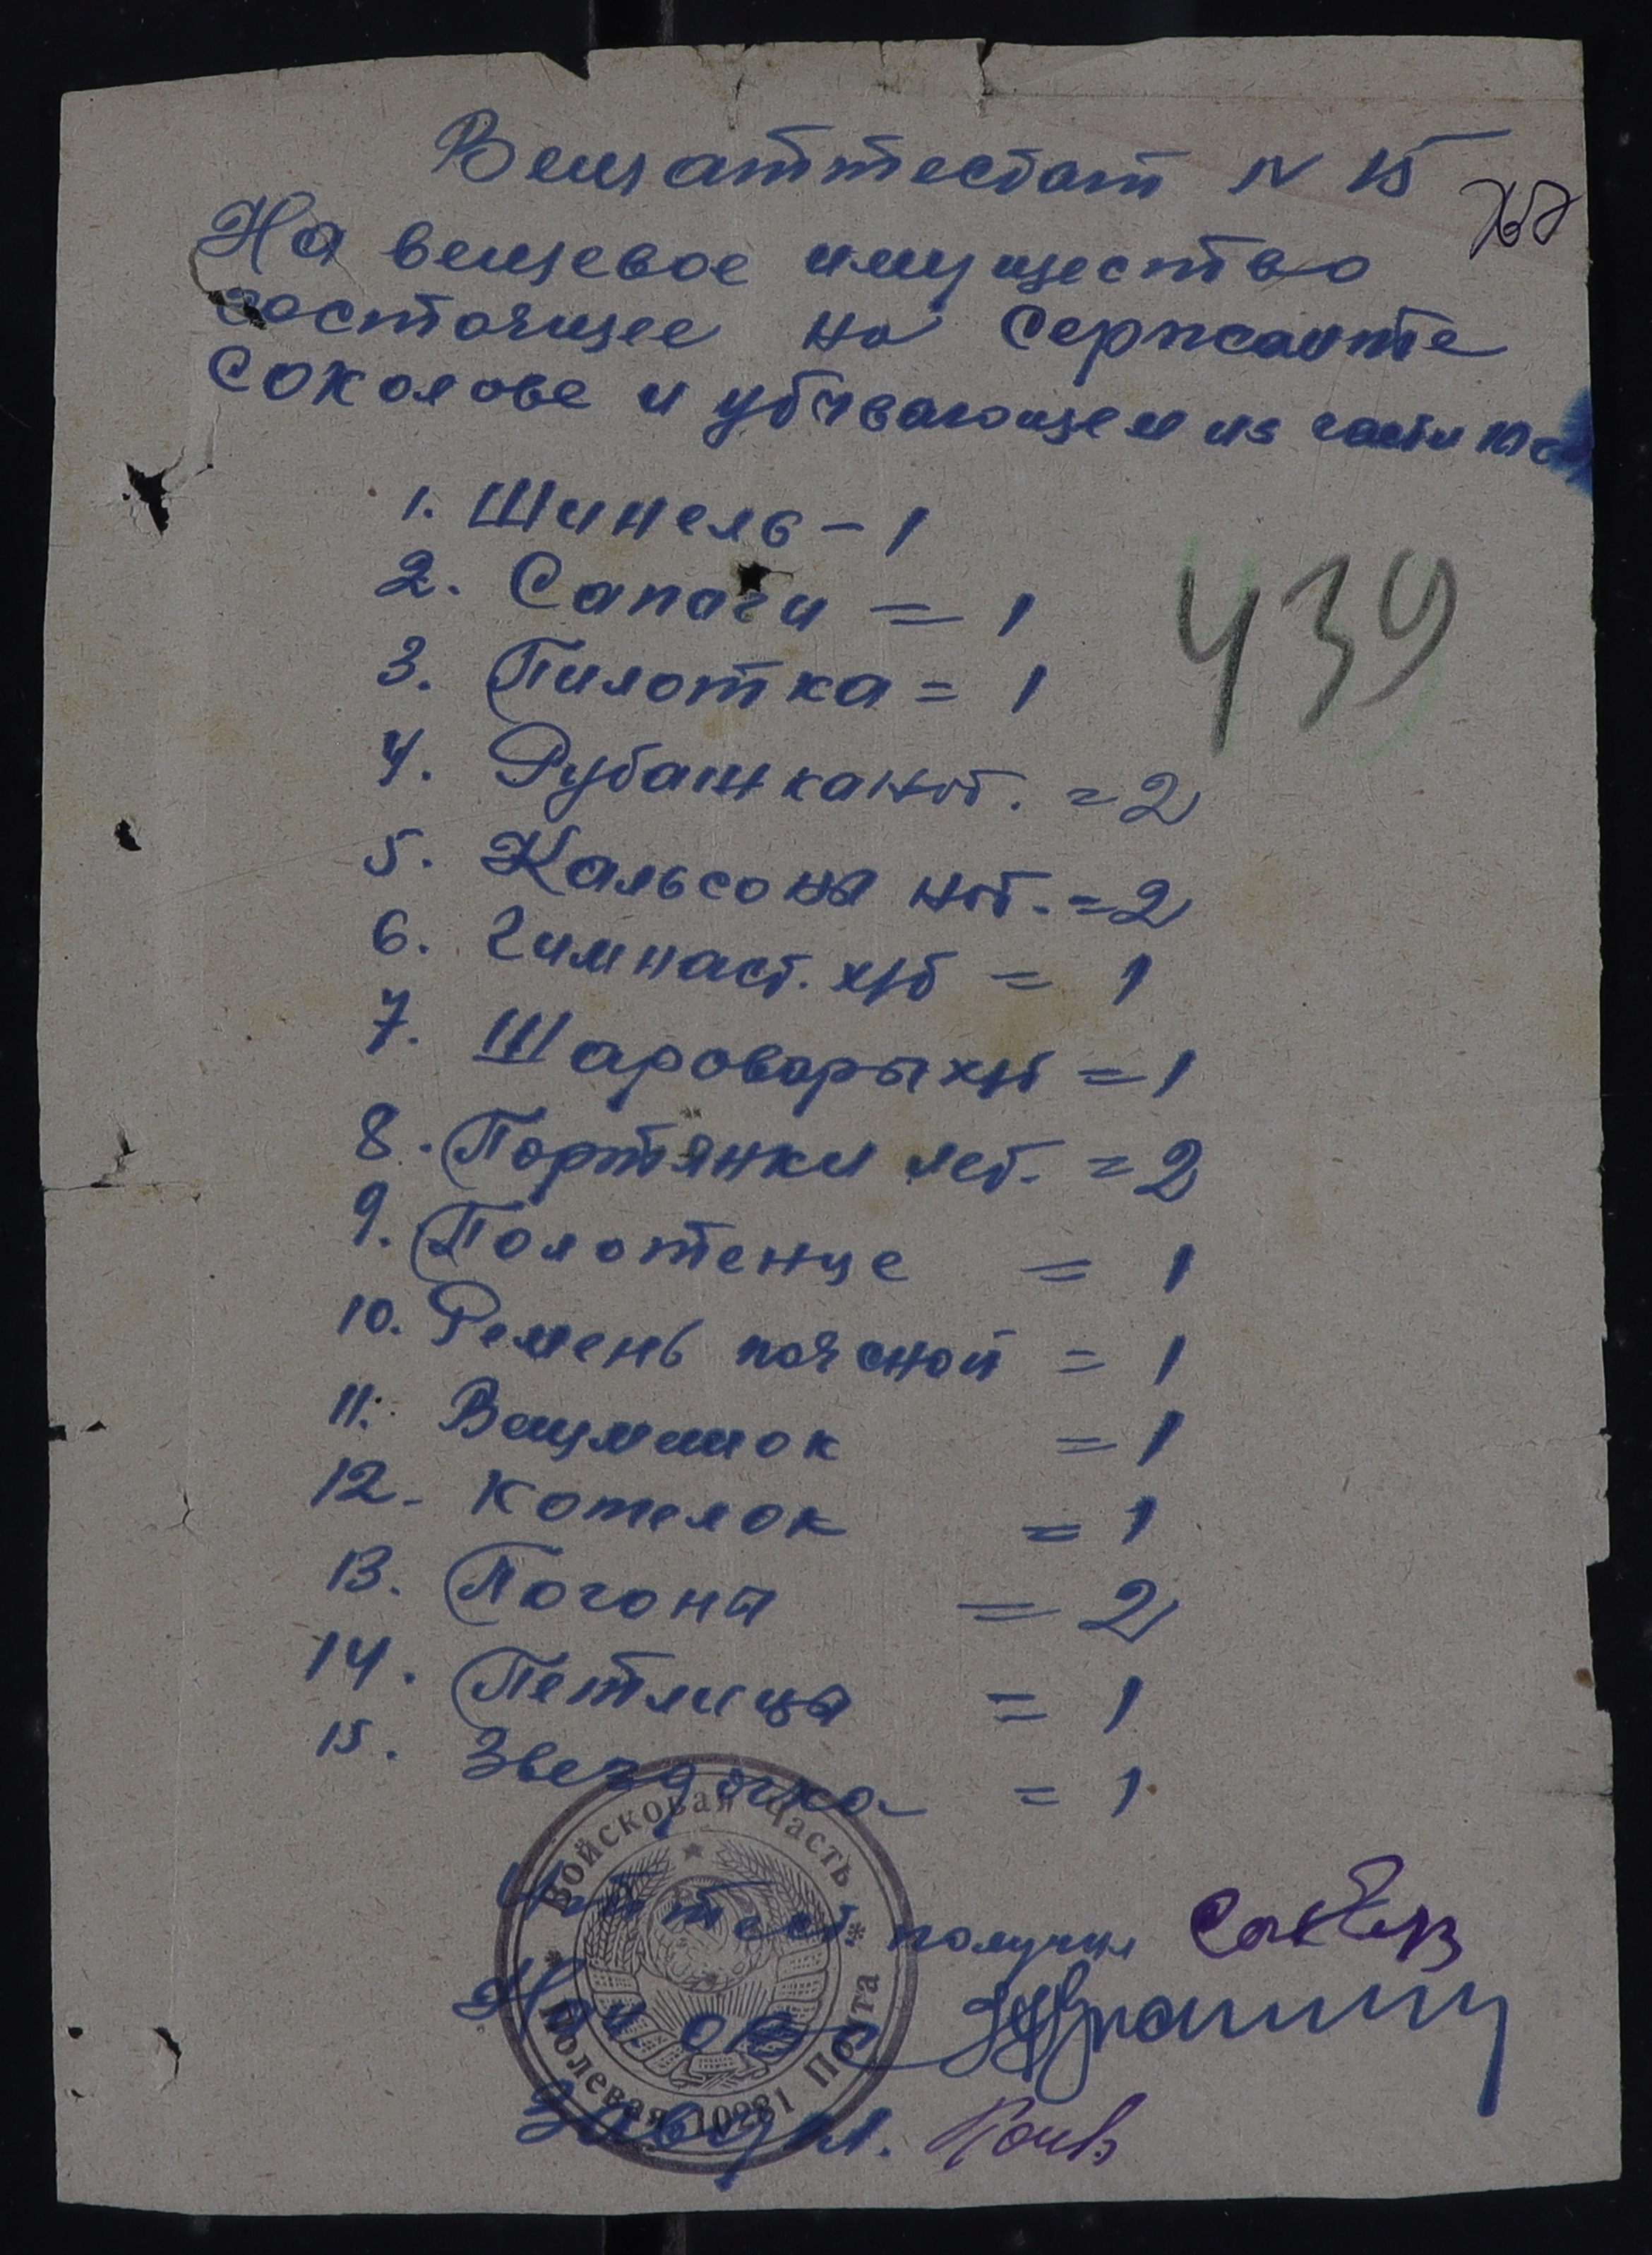 Вещаттестат N 15
На вещевое имущество
состоящее на Сержанте
Соколове и убывающем из части
1. Шинель - 1
2. Сапаги = 1
3. Пилотка = 1
4. Рубашка нат. = 2
5. Кальсоны нат. = 2
6. Гимнаст. х/б = 1
7. Шаровары х/б = 1
8. Портянки лет. = 2
9. Полотенце = 1
10. Ремень поясной = 1
11. Вещмешок = 1
12. Котелок = 1
13. Погоны = 2
14. Петлицы = 1
15. Звездочка = 1
439
получил
Войсковая Часть
Полевая Почта